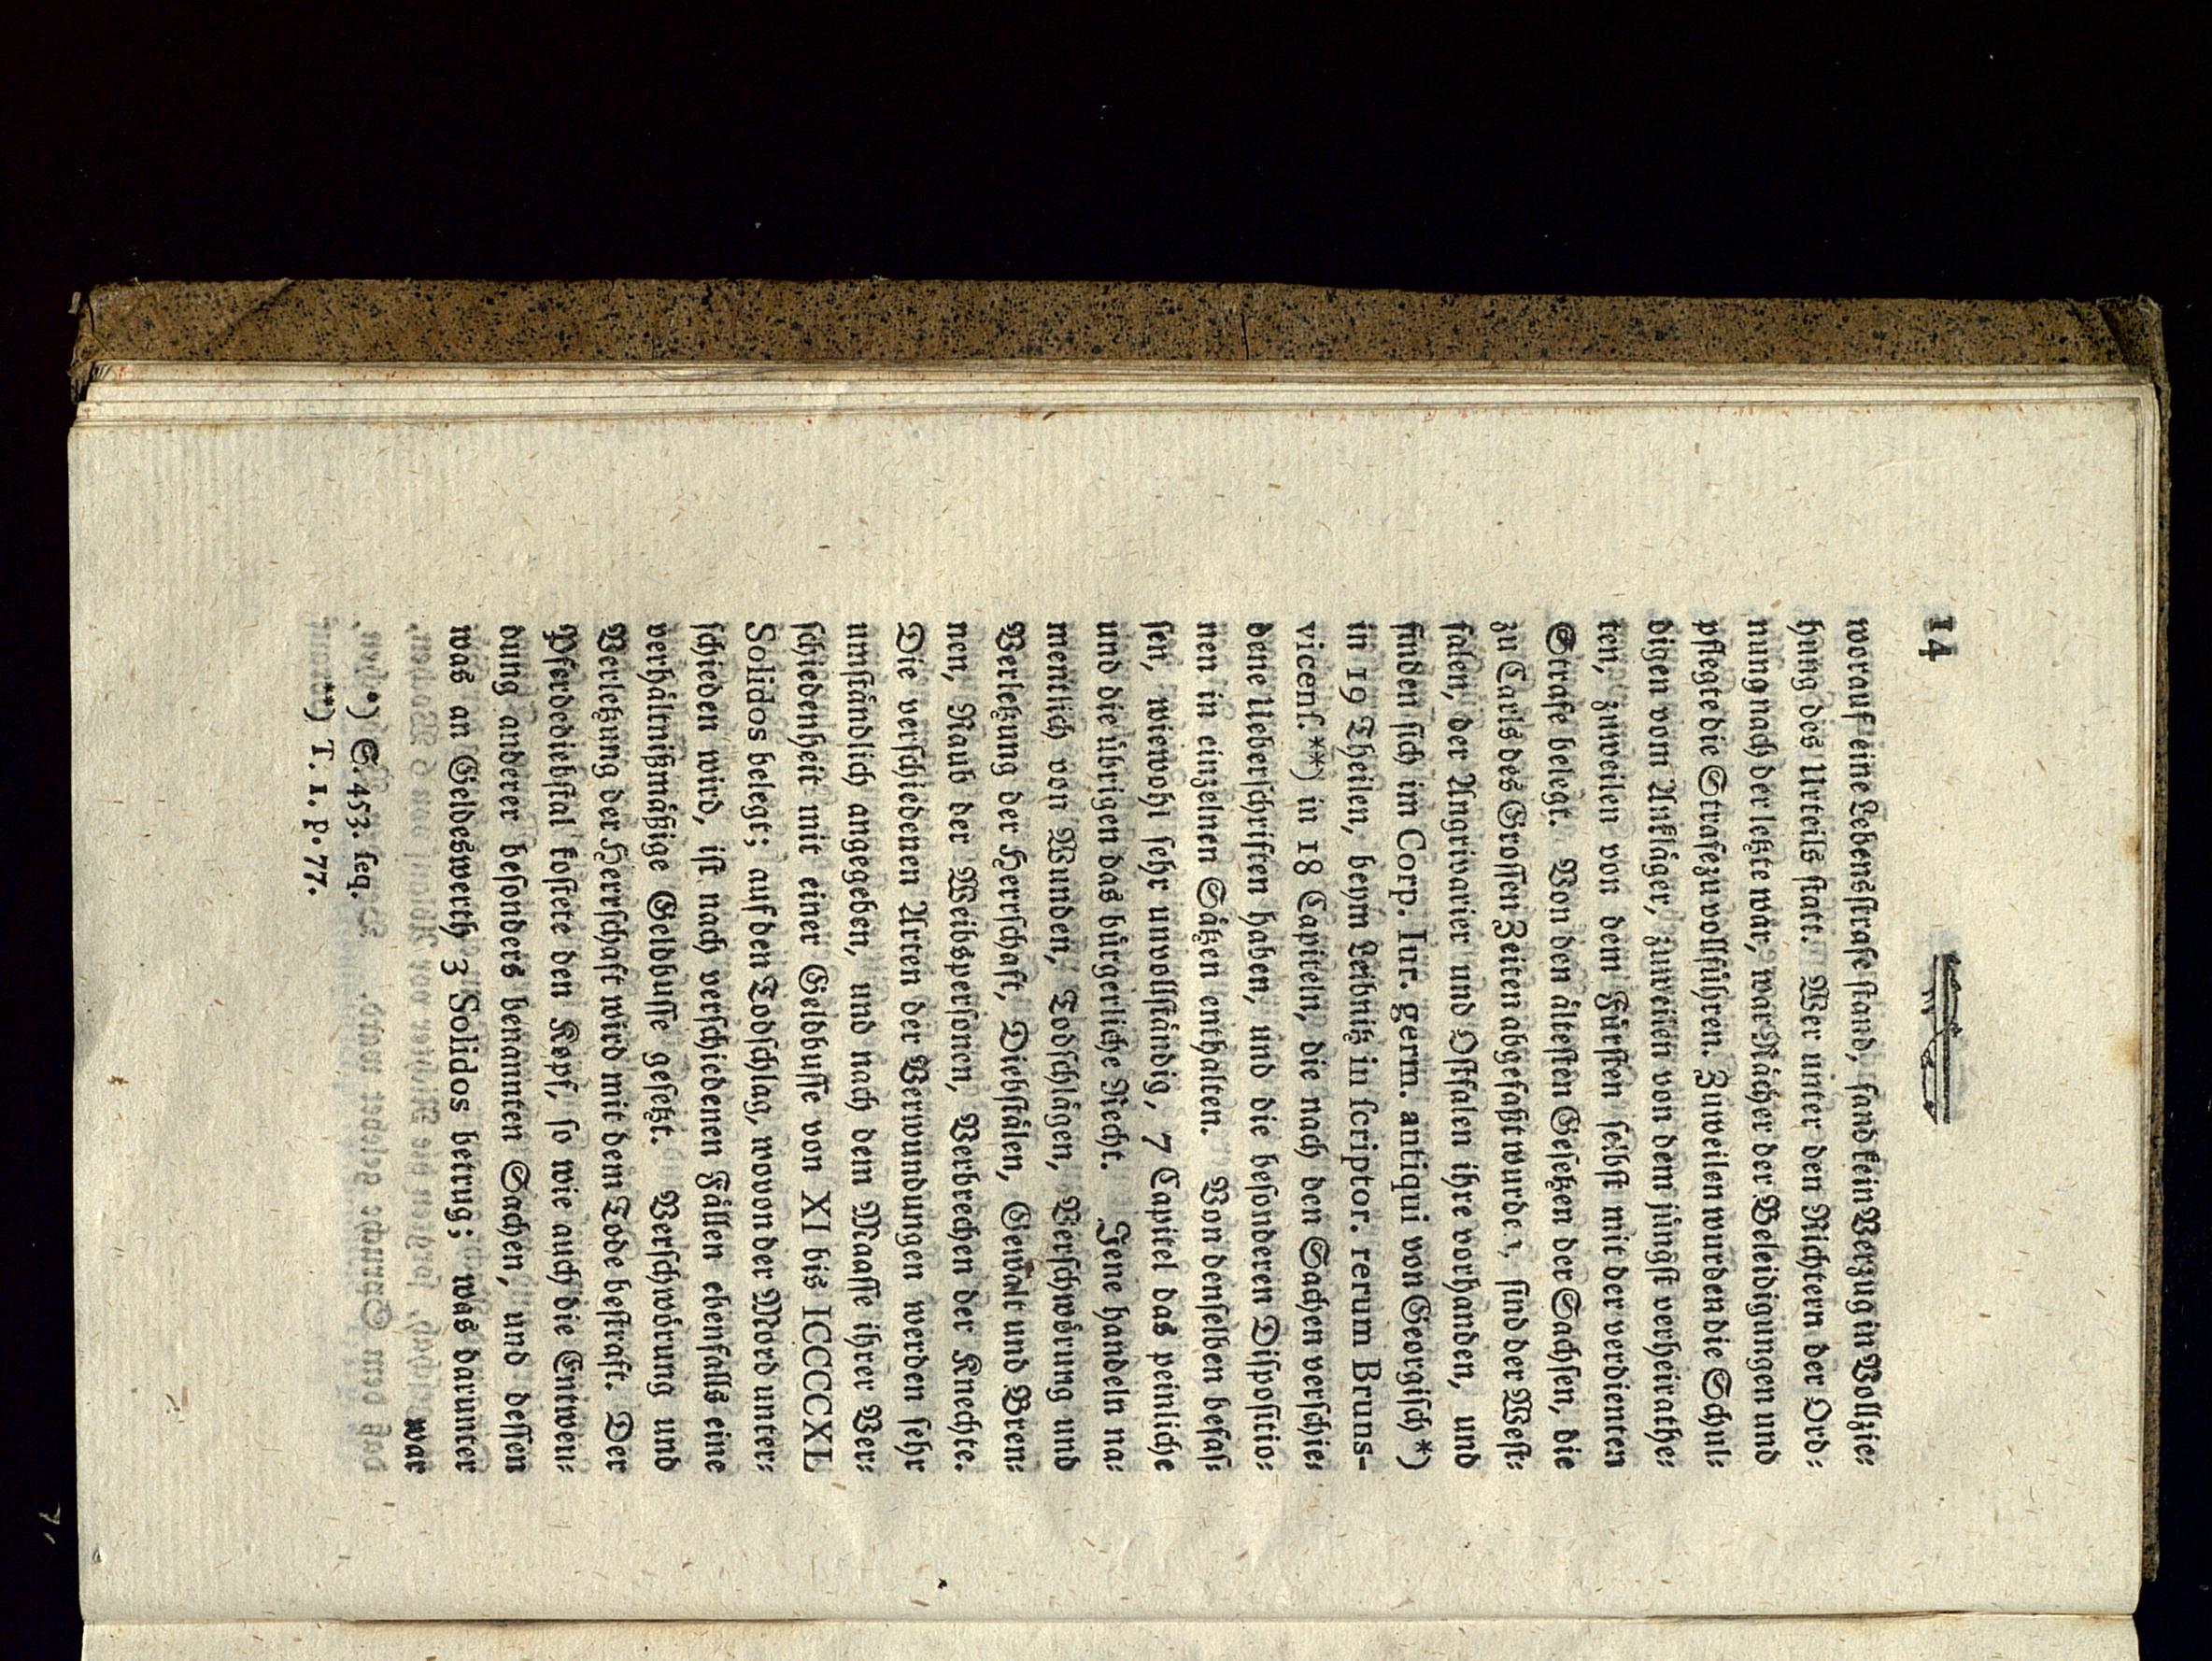 14
worauf eine Lebensstrafe stand, fand kein Verzug in Vollzie-
hung des Urteils statt. Wer unter den Richtern der Ord-
nung nach der letzte war, war Rächer der Beleidigungen und
pflegte die Strafe zu vollführen. Zuweilen wurden die Schul-
digen vom Ankläger, zuweilen von dem jüngst verheirathe-
ten, zuweilen von dem Fürsten selbst mit der verdienten
Strafe belegt. Von den ältesten Gesetzen der Sachsen, die
zu Carls des Grossen Zeiten abgefaßt wurden, sind der West-
falen, der Angrivarier und Ostfalen ihre vorhanden, und
finden sich im Corp. Iur. germ. antiqui von Georgisch*)
in 19 Theilen, beym Leibnitz in scriptor. rerum Bruns-
vicens.**) in 18 Capiteln, die nach den Sachen verschie-
dene Ueberschriften haben, und die besonderen Dispositio-
nen in einzelnen Sätzen enthalten. Von denselben befas-
sen, wiewohl sehr unvollständig, 7 Capitel das peinliche
und die übrigen das bürgerliche Recht. Jene handeln na-
mentlich von Wunden, Todschlägen, Verschwörung und
Verletzung der Herrschaft, Diebstälen, Gewalt und Bren-
nen, Raub der Weibspersonen, Verbrechen der Knechte.
Die verschiedenen Arten der Verwundungen werden sehr
umständlich angegeben, und nach dem Maasse ihrer Ver-
schiedenheit mit einer Geldbusse von XI bis ICCCCXL
Solidos belegt; auf den Todschlag, wovon der Mord unter-
schieden wird, ist nach verschiedenen Fällen ebenfalls eine
verhältnißmäßige Geldbusse gesetzt. Verschwörung und
Verletzung der Herrschaft wird mit dem Tode bestraft. Der
Pferdediebstal kostete den Kopf, so wie auch die Entwen-
dung anderer besonders benannten Sachen, und dessen
was an Geldeswerth 3 Solidos betrug; was darunter
war
*) S. 453. seq.
**) T. 1. p. 77.